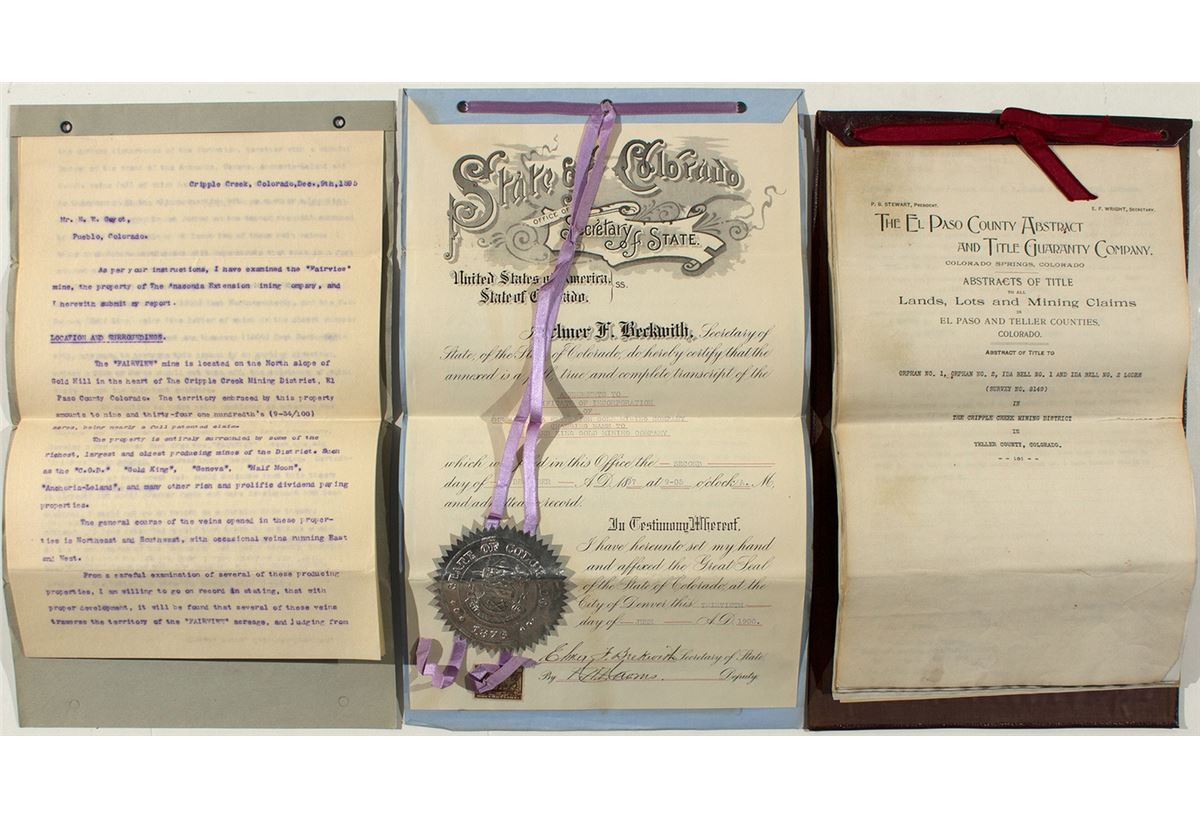 Cripple Creek, Colorado, Dec., 9th, 1895
Mr.
Pueblo, Colorado.
As per your instructions, I have examined the "Fairview"
mine, the property of The Anaconda Extension Mining Company, and
I herewith submit my report.
LOCATION AND SURROUNDINGS.
The "FAIRVIEW" mine is located on the North slope of
Gold Hill in the heart of The Cripple Creek Mining District, El
Paso County Colorado. The territory embraced by this property
amounts to nine and thirty-four one hundredth's (9-34/100)
acres, being nearly a full patented claim.
The property is entirely surrounded by some of the
richest, largest and oldest producing mines of the District. Such
as the "C.O.D." "Gold King", "Geneva", "Half Moon",
"Anchoria-Leland", and many other rich and prolific dividend paying
properties.
The general course of the veins opened in these proper-
ties is Northeast and Southwest, with occasional veins running East
and West.
From a careful examination of several of these producing
properties, I am willing to go on record in stating, that with
proper development, it will be found that several of these veins
traverse the territory of the "FAIRVIEW" acreage, and judging from
State of Colorado
OFFICE OF
Secretary of STATE.
United States of America, ss.
State of Colorado.
Elmer F. Beckwith, Secretary of
State, of the State of Colorado, do hereby certify that the
annexed is a full, true and complete transcript of the
TO
OF INCORPORATION
OF
GOLD MINING COMPANY
CHANGING NAME TO
KING GOLD MINING COMPANY.
which was filed in this Office the SECOND
day of A.D. 1897 at 9-05 o'clock A. M,
and admitted to record.
In Testimony Whereof,
I have hereunto set my hand
and affixed the Great Seal
of the State of Colorado, at the
City of Denver this THIRTIETH
day of JUNE A.D. 1900.
Elmer F. Beckwith Secretary of State
By Deputy.
STATE OF COLORADO
1876
P. B. STEWART, PRESIDENT.
E. F. WRIGHT, SECRETARY.
THE EL PASO COUNTY ABSTRACT
AND TITLE GUARANTY COMPANY.
COLORADO SPRINGS, COLORADO
ABSTRACTS OF TITLE
TO ALL
Lands, Lots and Mining Claims
IN
EL PASO AND TELLER COUNTIES,
COLORADO.
ABSTRACT OF TITLE TO
ORPHAN NO. 1, ORPHAN NO. 2, IDA BELL NO. 1 AND IDA BELL NO. 2 LODES
(SURVEY NO. 8149)
IN
THE CRIPPLE CREEK MINING DISTRICT
IN
TELLER COUNTY, COLORADO.